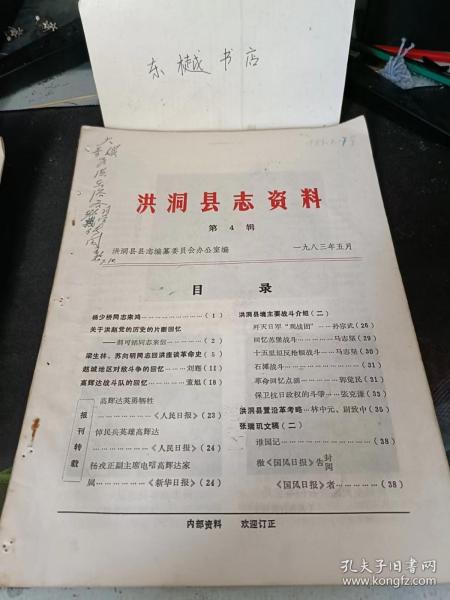 东樾书店
洪洞县志资料
第4辑
洪洞县县志编纂委员会办公室编 一九八三年五月
目 录
杨少桥同志来鸿………………(1)
关于洪赵党的历史的片断回忆
——荆可铭同志来信…………(2)
梁生林、苏向明两志回洪座谈革命史(5)
赵城地区对敌斗争的回忆……刘遐(11)
高辉达战斗队的回忆…………董旭(18)
报刊转载
高辉达英勇牺牲
…………《人民日报》(23)
悼民兵英雄高辉达
…………《人民日报》(24)
杨戎正副主席电唁高辉达家
属……《新华日报》(24)
洪洞县境主要战斗介绍(二)
歼灭日军“观战团”…孙宗武(26)
回忆苏堡战斗…………马志坚(29)
十五里坦反抢粮战斗…马志坚(30)
石滩战斗…………………(31)
革命回忆点滴…………郭俊民(31)
保卫抗日政权的斗争…张克谦(33)
洪洞县置沿革考略…林中元、尉致中(35)
张瑞玑文稿(二)
谁国记……………………(38)
檄《国风日报》告封闭
《国风日报》者…………(38)
内部资料 欢迎订正
孔夫子旧书网
www.kongfz.com